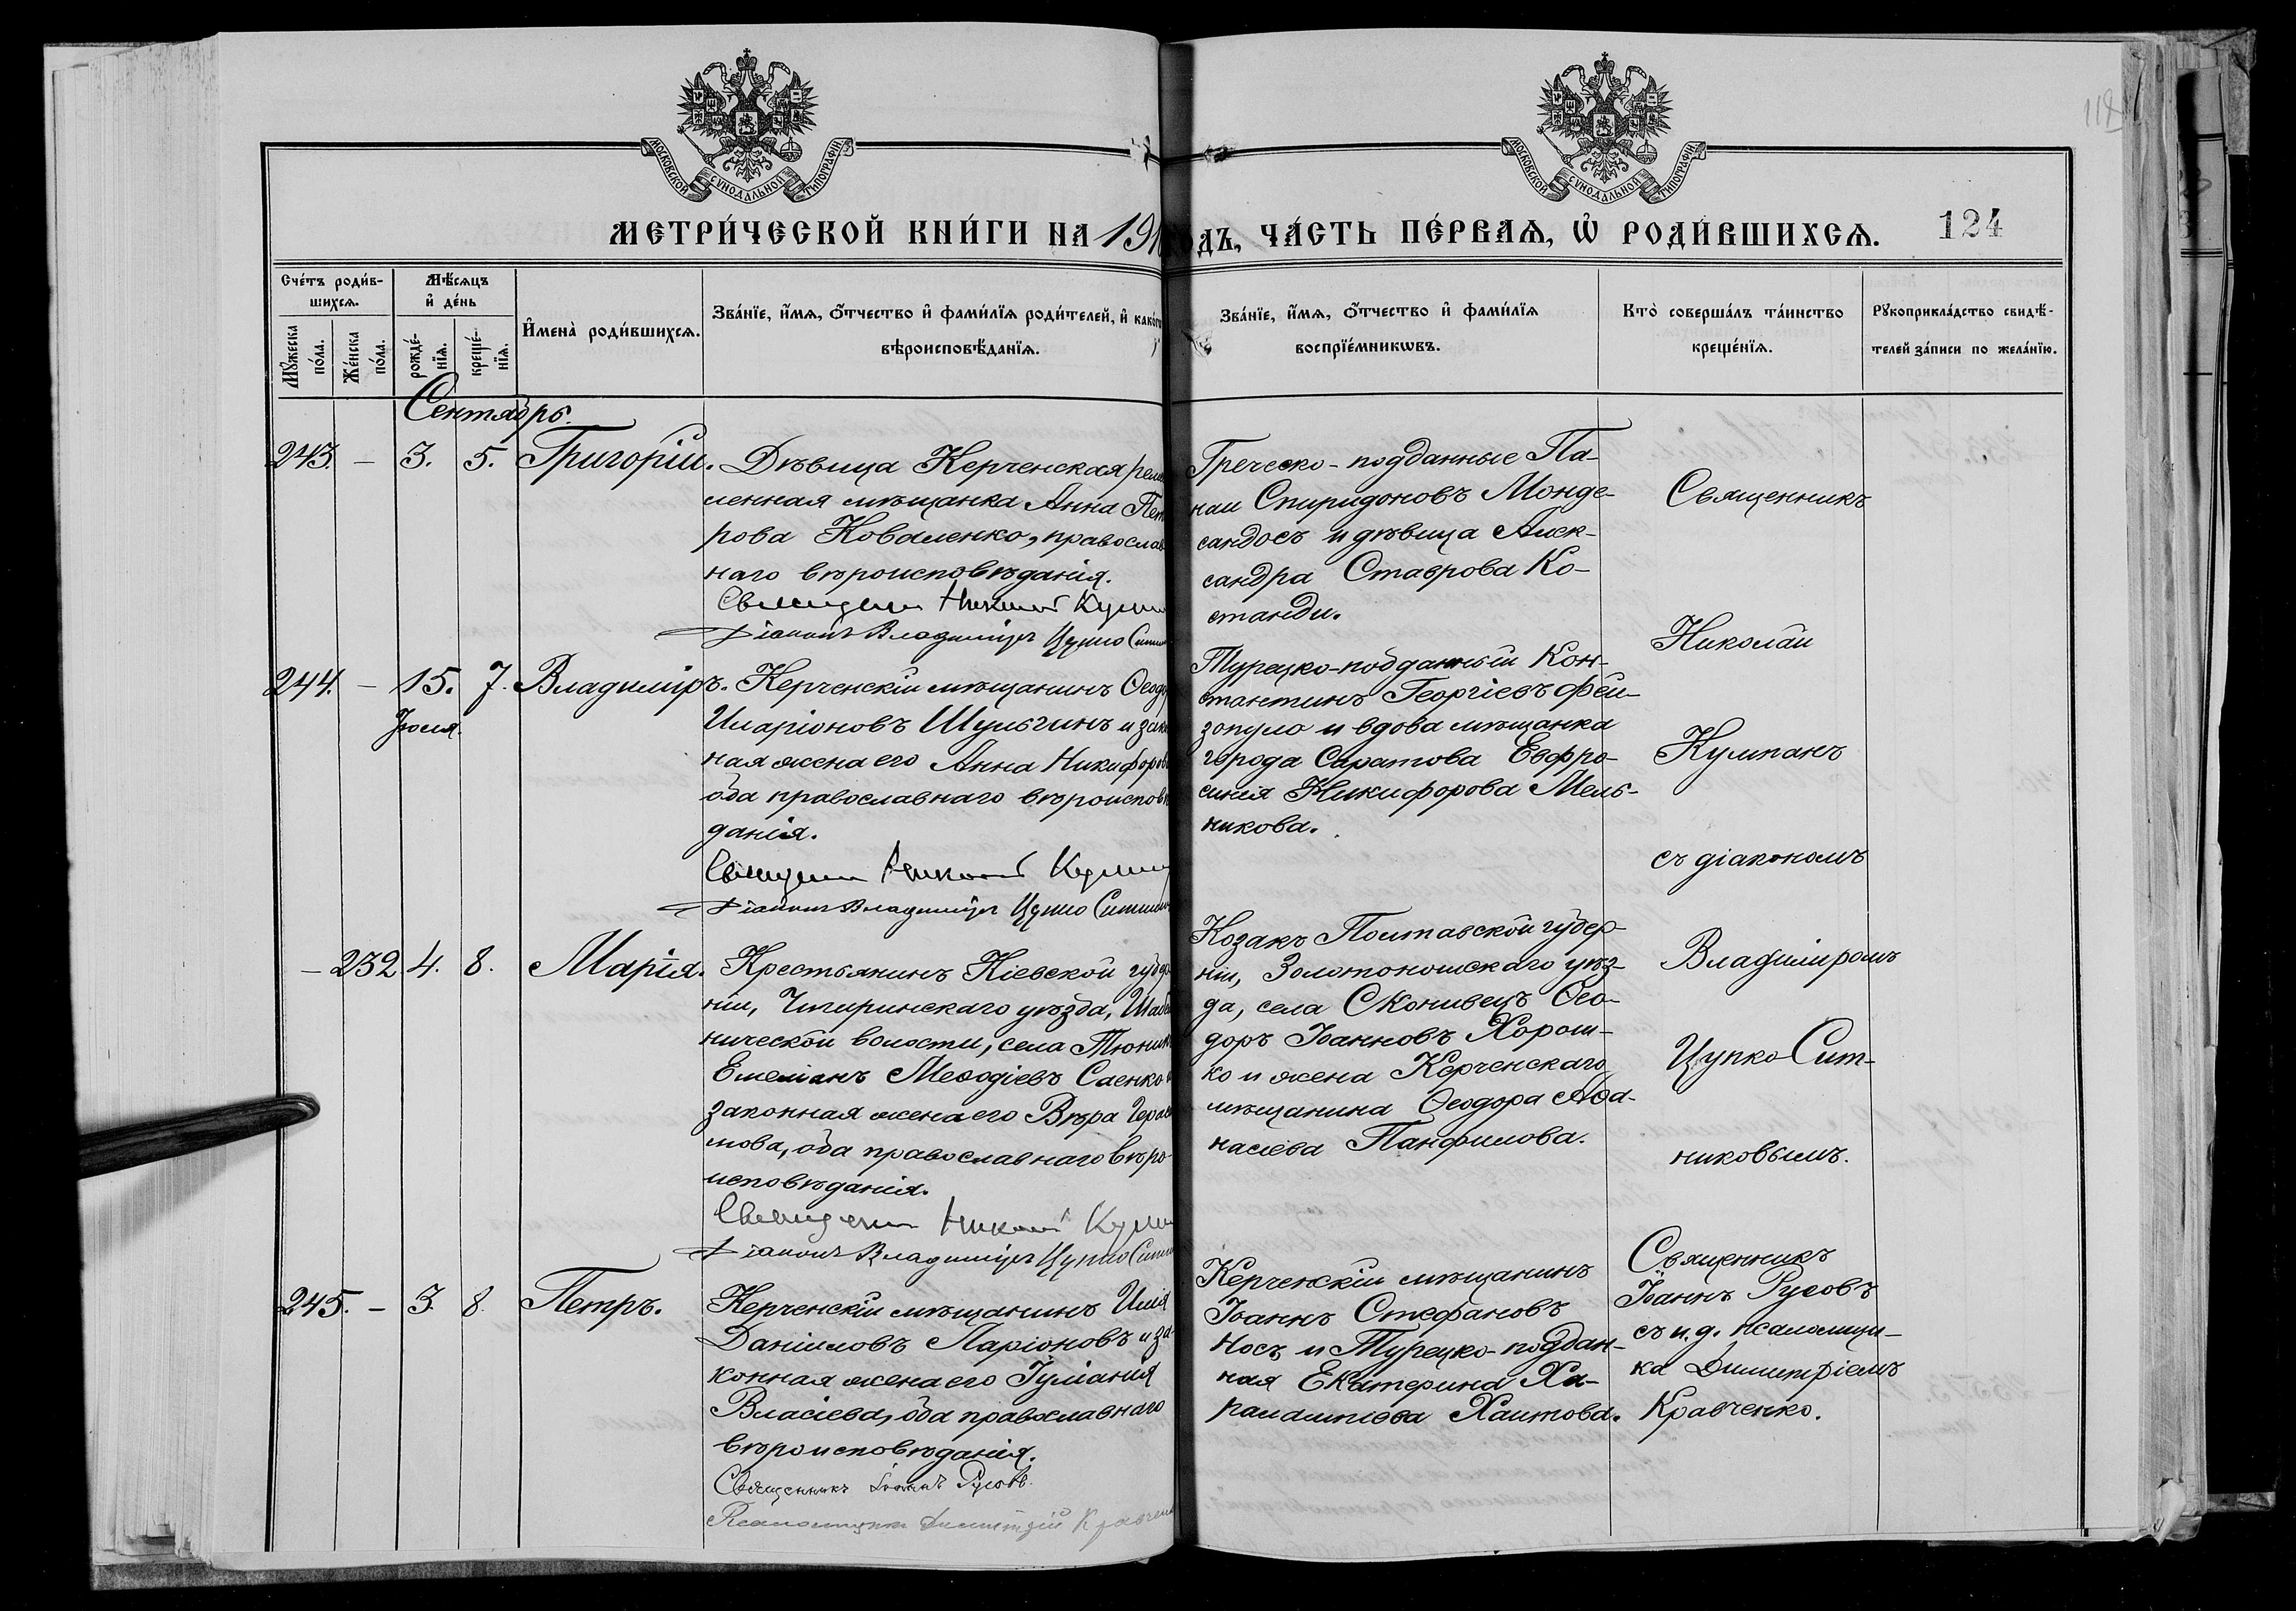 МОСКОВСКОЙ СѴНОДАЛЬНОЙ ТИПОГРАФІИ
МОСКОВСКОЙ СѴНОДАЛЬНОЙ ТИПОГРАФІИ
118
МЕТРИ́ЧЕСКОЙ КНИ́ГИ НА 191
ДЪ, ЧА́СТЬ ПЕ́РВАѦ, Ѡ҆ РОДИ́ВШИХСѦ.
124
Сче́тъ роди́в-
шихсѧ.
Мꙋ́жеска по́ла.
Же́нска по́ла.
Мѣ́сѧцъ
и҆ де́нь
рожде́-нїѧ.
креще́-нїѧ.
И҆мена̀ роди́вшихсѧ.
Зва́нїе, и҆́мѧ, ѻ҆́тчество и҆ фами́лїѧ роди́телей, и҆ како́гѡ
вѣроисповѣ́данїѧ.
Зва́нїе, и҆́мѧ, ѻ҆́тчество и҆ фами́лїѧ
воспрїе́мникѡвъ.
Кто̀ соверша́лъ та́инство
креще́нїѧ.
Рꙋкоприкла́дство свидѣ́-
телей за́писи по жела́нїю.
Сентябрь.
243. – 3. 5. Григорій. Дѣвица Керченская
ленная мѣщанка Анна Пет
рова Коваленко, православ
наго вѣроисповѣданія.
Священникъ Николай Кулпа
Діаконъ Владиміръ Цупко Ситн
Греческо-подданные Па-
наи Спиридоновъ Монде-
сандосъ и дѣвица Алек-
сандра Ставрова Ко-
станди.
244. – 15. 7. Владиміръ. Керченскій мѣщанинъ Ѳеодо
Іюля.
Иларіоновъ Шульгинъ и зако
ная жена его Анна Никифоров
оба православнаго вѣроисповѣ
данія.
Священникъ Николай Кулпа
Діаконъ Владиміръ Цупко Ситник
Турецко-подданный Кон-
стантинъ Георгіевъ Фей-
зопуло и вдова мѣщанка
города Саратова Евфро-
синія Никифорова Мель-
никова.
– 232 4. 8. Марія. Крестьянинъ Кіевской губер
ніи, Чигиринскаго уѣзда, Шабел
нической волости, села Тюньк
Емеліанъ Меѳодіевъ Саенко и
законная жена его Вѣра Гераси
мова, оба православнаго вѣро-
исповѣданія.
Священникъ Николай Кулпа
Діаконъ Владиміръ Цупко Ситн
Козакъ Полтавской губер-
ніи, Золотоношскаго уѣз-
да, села Сконивецъ Ѳео-
доръ Іоанновъ Хорош-
ко и жена Керченскаго
мѣщанина Ѳеодора Аѳа-
насіева Панфилова.
Священникъ
Николай
Кулпанъ
съ діакономъ
Владиміромъ
Цупко Сит-
никовымъ.
245. – 3. 8. Петръ. Керченскій мѣщанинъ Илія
Даніиловъ Ларіоновъ и за-
конная жена его Іуліанія
Власіева, оба православнаго
вѣроисповѣданія.
Священникъ Іоаннъ Русовъ.
Псаломщикъ Димитрій Кравченк
Керченскій мѣщанинъ
Іоаннъ Стефановъ
Носъ и Турецко-поддан-
ная Екатерина Ха-
ралампіева Хаитова.
Священникъ
Іоаннъ Русовъ
съ и.д. псаломщи-
ка Димитріемъ
Кравченко.